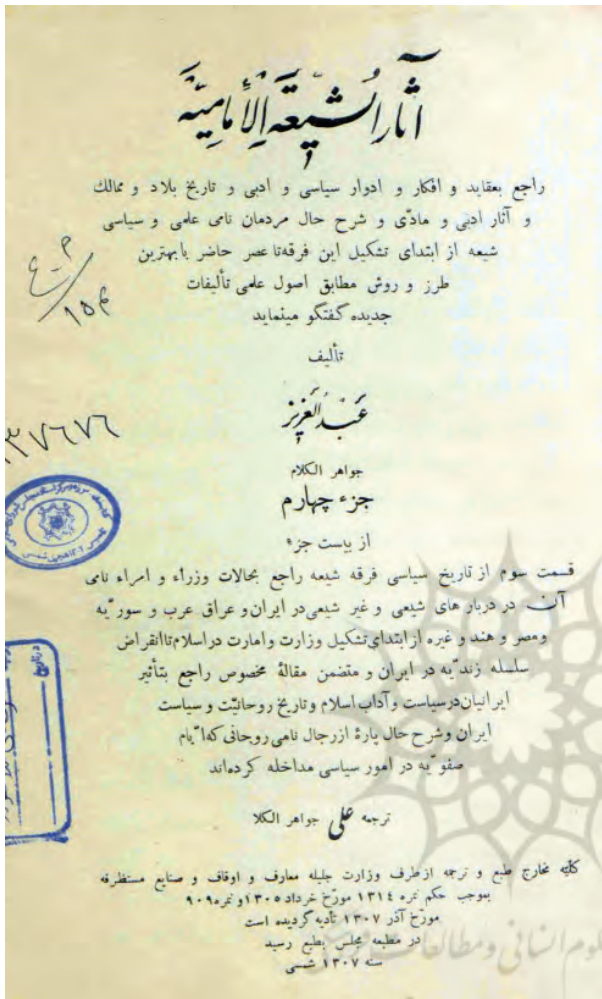 آثار الشیعة الإمامیة
راجع بعقاید و افکار و ادوار سیاسی و ادبی و تاریخ بلاد و ممالك
و آثار ادبی و مادّی و شرح حال مردمان نامی علمی و سیاسی
شیعه از ابتدای تشکیل این فرقه تا عصر حاضر با بهترین
طرز و روش مطابق اصول علمی تألیفات
جدیده گفتگو مینماید
تألیف
عبد العزیز
جواهر الکلام
جزء چهارم
از بیست جزء
قسمت سوم از تاریخ سیاسی فرقه شیعه راجع بحالات وزراء و امراء نامی
آن در دربار های شیعی و غیر شیعی در ایران و عراق عرب و سوریّه
ومصر و هند و غیره از ابتدای تشکیل وزارت وامارت دراسلام تا انقراض
سلسله زندیّه در ایران و متضمن مقالهٔ مخصوص راجع بتأثیر
ایرانیان درسیاست و آداب اسلام و تاریخ روحانیّت و سیاست
ایران وشرح حال پارهٔ از رجال نامی روحانی که ایّام
صفویّه در امور سیاسی مداخله کرده‌اند
ترجمه علی جواهر الکلا
کلیّه مخارج طبع و ترجمه از طرف وزارت جلیله معارف و اوقاف و صنایع مستظرفه
بموجب حکم نمره ۱۳۱٤ مورّخ خرداد ۱۳۰۵ و نمره ۹۰۹
مورّخ آذر ۱۳۰۷ تأدیه گردیده است
در مطبعه مجلس بطبع رسید
سنه ۱۳۰۷ شمسی
۱۵۶
۳۷۶۷۶
علوم انسانی و مطالعات فرهنگی